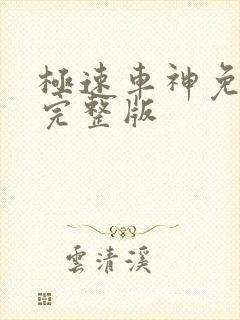 極速車神免
完整版
雲清溪